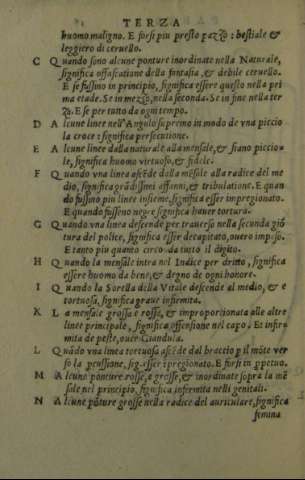 TERZA
huomo maligno. E forsi piu presto pazzo: bestiale &
leggiero di ceruello.
C Quando sono alcune ponture inordinate nella Naturale,
significa offuscatione della fantasia, & debile ceruello.
E se fussino in principio, significa essere questo nella pri
ma etade. Se in mezzo, nella seconda. Se in fine nella ter
za. E se per tutto da ogni tempo.
D Alcune linee nell'Angulo supremo in modo de vna piccio
la croce: significa persecutione.
E Alcune linee dalla naturale alla mensale, & siano piccio=
le, significa huomo virtuoso, & fidele.
F Quando vna linea ascēde dalla mēsale alla radice del me
dio, significa grādissimi affanni, & tribulatione. E quan
do fussino piu linee insieme, significa esser impregionato.
E quando fussino negre significa hauer tortura.
G Quando vna linea descende per trauerso nella seconda giō
tura del police, significa esser decapitato, ouero impiso.
E tanto piu quanto circōda tutto il digito.
H Quando la mensale intra nel Indice per dritto, significa
essere huomo da bene, & degno de ogni honore.
I Quando la Sorella della Vitale descende al medio, & è
tortuosa, significa graue infirmita.
K La mensale grossa e rossa, & improportionata alle altre
linee principale, significa offensione nel capo. Et infir=
mita de peste, ouer Giandula.
L Quādo vna linea tortuosa ascēde dal braccio p il mōte ver
so la percussione, sig. esser ipregionato. E forsi in ppetuo.
M Alcune ponture rosse, e grosse, & inordinate sopra la mē
sale nel principio, significa infirmita nelli genitali.
N Alcune pōture grosse nella radice del auriculare, significa
femina